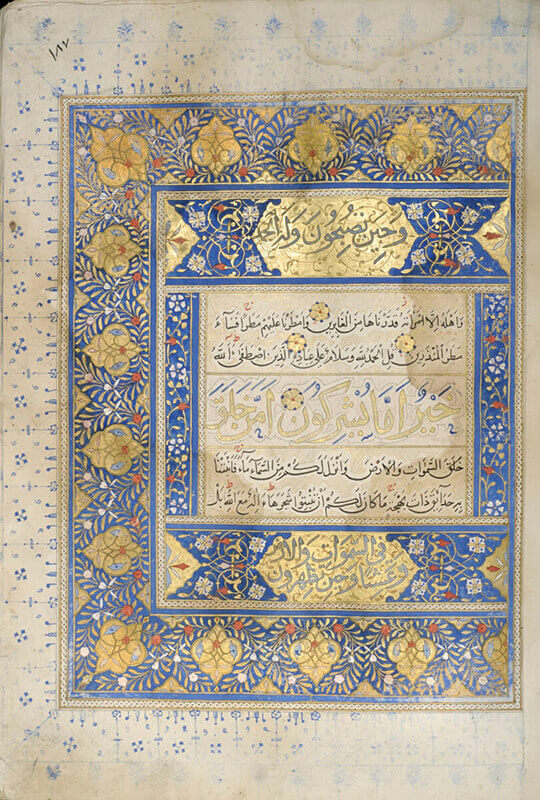 ١٨٧
وَحِينَ تُصْبِحُونَ وَلَهُ الحمد
وَاهله الا امراته قدرناها من الغابرين وامطرنا عليهم مطرا فساء
مطر المنذرين قل الحمد لله وسلام على عباده الذين اصطفى ءالله
خير اما يشركون امن خلق
خلق السموات والارض وانزل لكم من السماء ماء فانبتنا
به حدائق ذات بهجة ما كان لكم ان تنبتوا شجرها ءاله مع الله بل
في السموات والارض
وعشيا وحين تظهرون